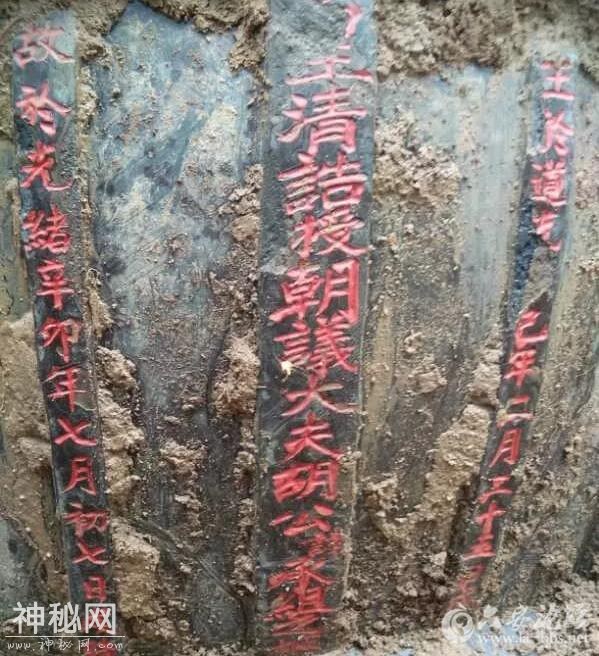 生於道光巳年二月二十五
皇清誥授朝議大夫胡公
故於光緒辛卯年七月初七日
神秘网
www.神秘网.com
六安论坛